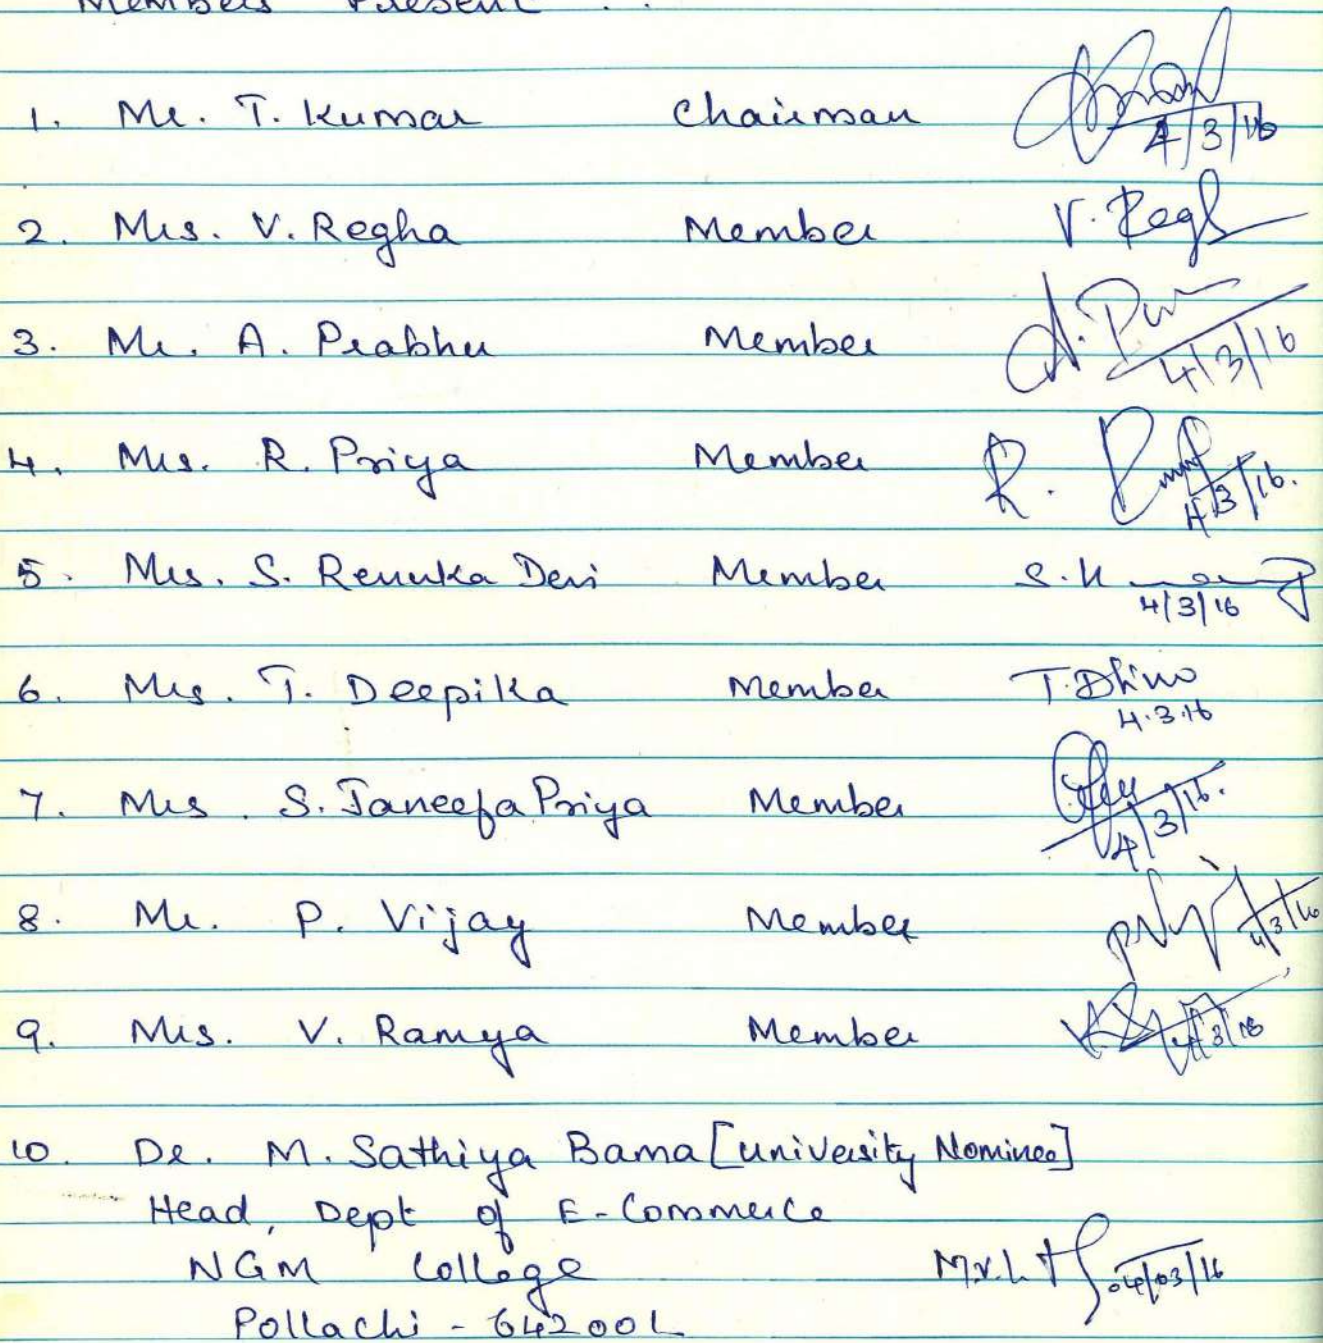 Members Present
1. Mr. T. Kumar Chairman 4/3/16
2. Mrs. V. Regha Member V. Regh
3. Mr. A. Prabhu Member 4/3/16
4. Mrs. R. Priya Member R. 4/3/16.
5. Mrs. S. Renuka Devi Member 4/3/16
6. Mrs. T. Deepika Member 4.3.16
7. Mrs. S. Janeefa Priya Member 4/3/16.
8. Mr. P. Vijay Member 4/3/16
9. Mrs. V. Ramya Member
10. Dr. M. Sathiya Bama [University Nominee]
Head, Dept of E-Commerce
NGM College 04/03/16
Pollachi - 642001